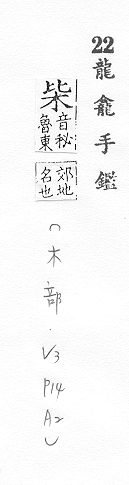 22龍龕手鑑
柴音秘魯東郊地名也
(木部.V3P14A2)